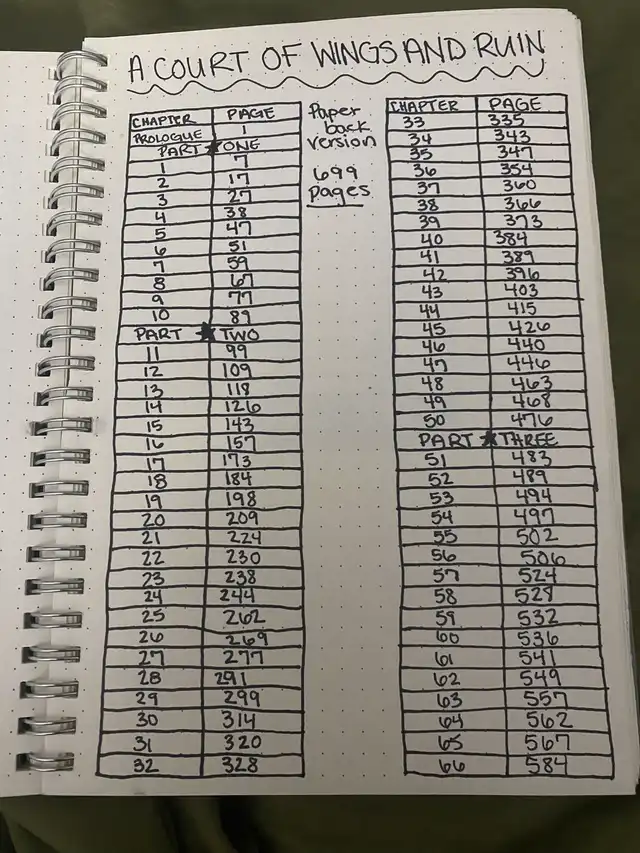 A COURT OF WINGS AND RUIN
CHAPTER PAGE
PROLOGUE 1
PART ★ ONE
1 7
2 17
3 27
4 38
5 47
6 51
7 59
8 67
9 77
10 89
PART ★ TWO
11 99
12 109
13 118
14 126
15 143
16 157
17 173
18 184
19 198
20 209
21 224
22 230
23 238
24 244
25 262
26 269
27 277
28 291
29 299
30 314
31 320
32 328
Paper
back
version
699
pages
CHAPTER PAGE
33 335
34 343
35 347
36 354
37 360
38 366
39 373
40 384
41 389
42 396
43 403
44 415
45 426
46 440
47 446
48 463
49 468
50 476
PART ★ THREE
51 483
52 489
53 494
54 497
55 502
56 506
57 524
58 528
59 532
60 536
61 541
62 549
63 557
64 562
65 567
66 584